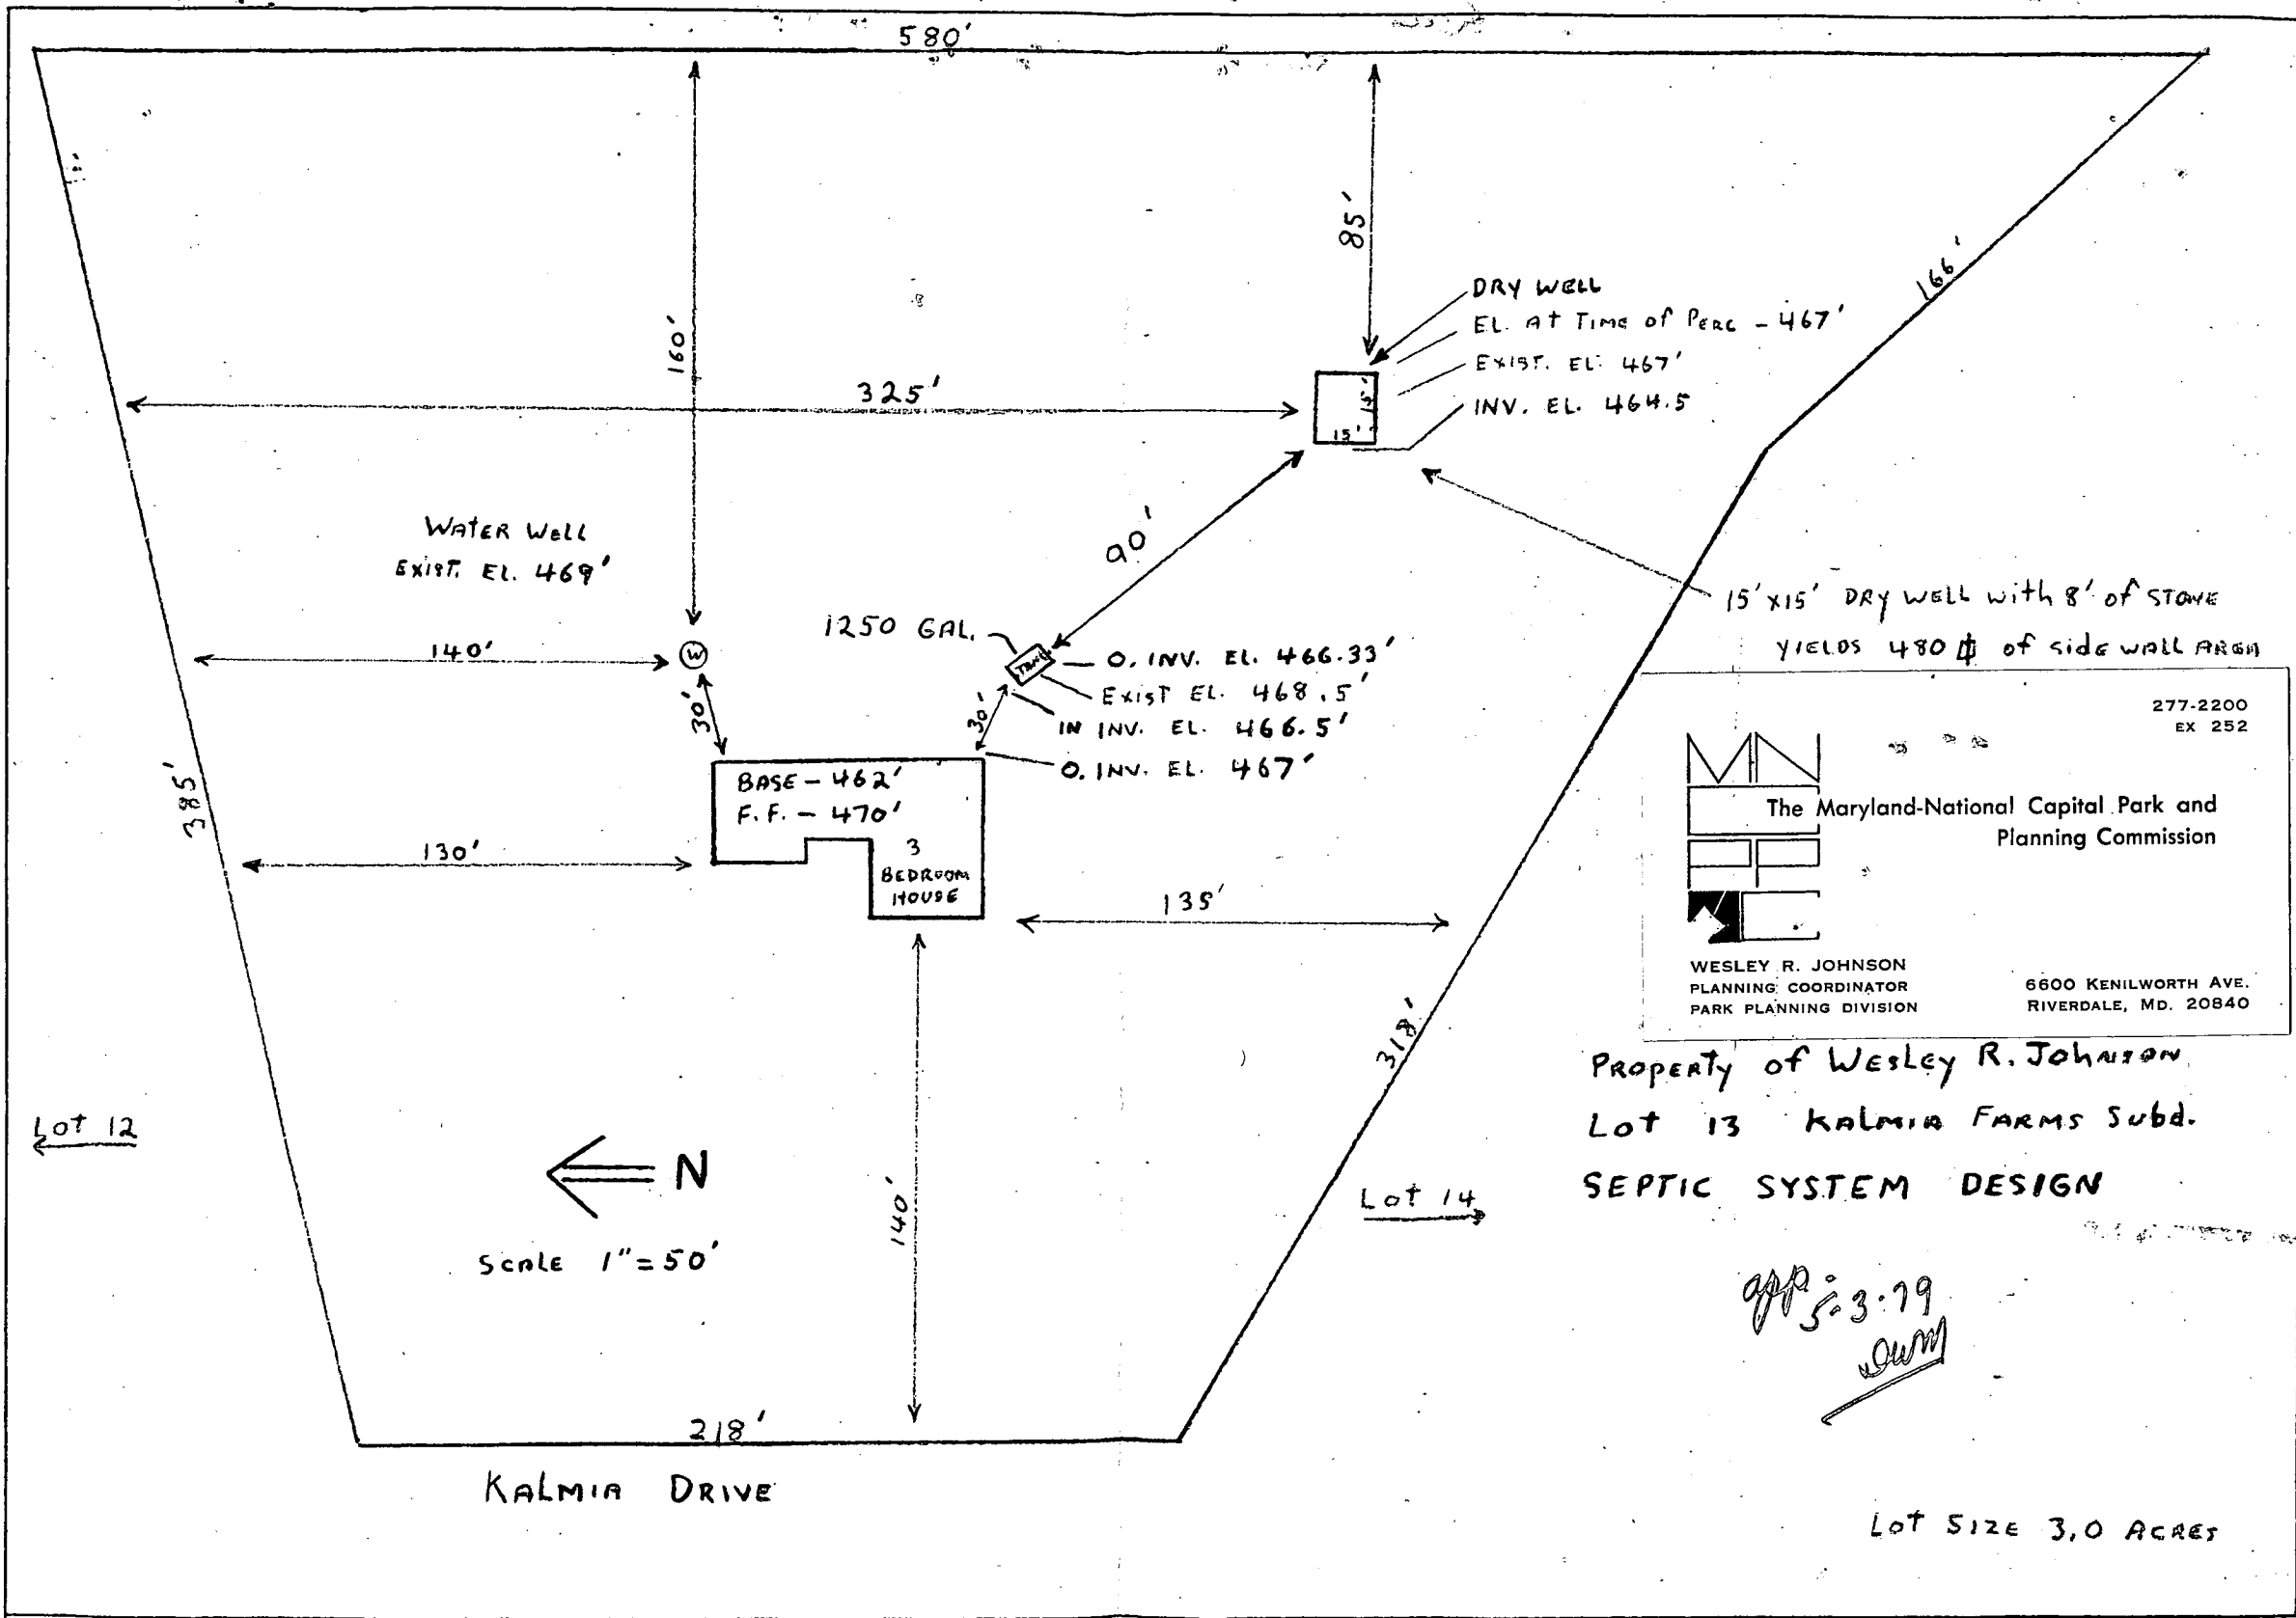 580'
160'
85'
325'
DRY WELL
EL. AT TIME of PERC - 467'
EXIST. EL. 467'
INV. EL. 464.5
15'
15'
166'
WATER WELL
EXIST. EL. 469'
90'
15'X15' DRY WELL with 8' of STONE
YIELDS 480 of side WALL AREA
1250 GAL.
TANK
O. INV. EL. 466.33'
EXIST EL. 468.5'
IN INV. EL. 466.5'
O. INV. EL. 467'
140'
W
30'
30'
BASE - 462'
F.F. - 470'
3
BEDROOM
HOUSE
385'
130'
135'
277-2200
EX 252
The Maryland-National Capital Park and
Planning Commission
WESLEY R. JOHNSON
PLANNING COORDINATOR
PARK PLANNING DIVISION
6600 KENILWORTH AVE.
RIVERDALE, MD. 20840
318'
PROPERTY of WESLEY R. JOHNSON
LOT 13 KALMIA FARMS Subd.
SEPTIC SYSTEM DESIGN
LOT 12
N
140'
LOT 14
SCALE 1"=50'
app. 5-3-79
218'
KALMIA DRIVE
LOT SIZE 3.0 ACRES